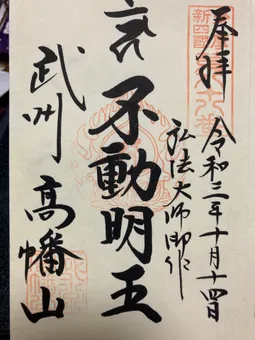 奉拝
令和二年十月十四日
弘法大師御作
不動明王
武州
高幡山
新四國